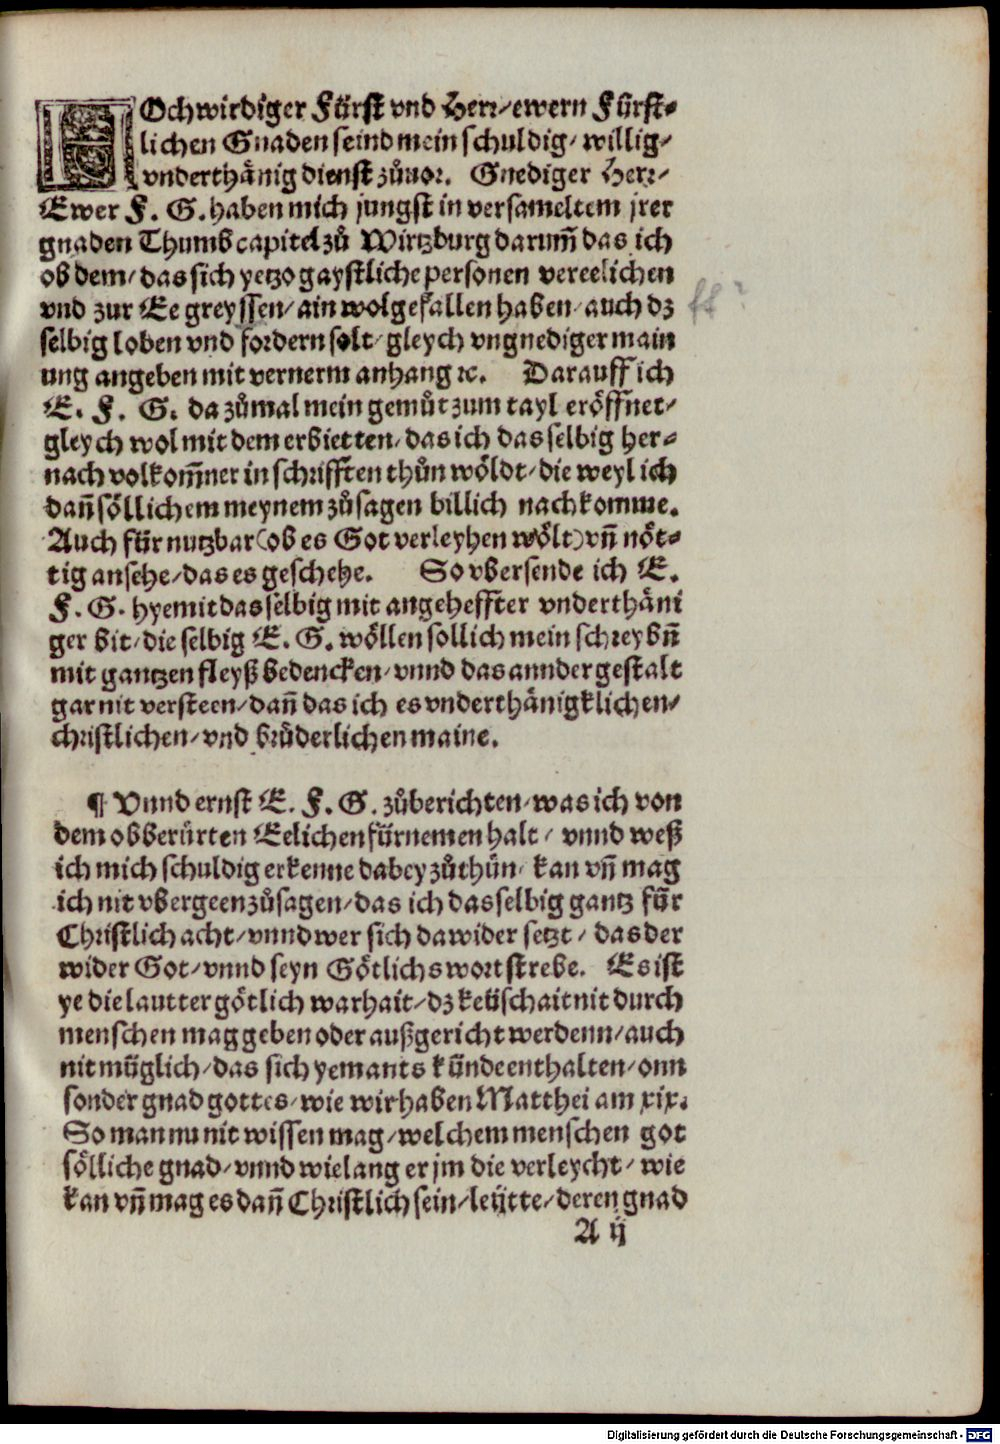 HOchwirdiger Fürst vnd Herr/ewern Fürst⸗
lichen Gnaden seind mein schuldig/ willig/
vnderthänig dienst zůuor. Gnediger Herr/
Ewer F. G. haben mich jungst in versameltem jrer
gnaden Thumbcapitel zů Wirtzburg darum̃ das ich
ob dem/das sich yetzo gaystliche personen vereelichen
vnd zur Ee greyssen/ain wolgefallen haben/auch dz
selbig loben vnd fordern solt/gleych vngnediger main
ung angeben mit vernerm anhang ꝛc. Darauff ich
E. F. G. da zůmal mein gemůt zum tayl eröffnet/
gleych wol mit dem erbietten/das ich das selbig her⸗
nach volkom̃ner in schrifften thůn wöldt/die weyl ich
dañ söllichem meynem zůsagen billich nachkomme.
Auch für nutzbar(ob es Got verleyhen wölt)vñ nöt⸗
tig ansehe/das es geschehe. So vbersende ich E.
F. G. hyemit das selbig mit angeheffter vnderthäni
ger bit/die selbig E. G. wöllen sollich mein schreybñ
mit gantzen fleyß bedencken/vnnd das annder gestalt
gar nit versteen/dañ das ich es vnderthänigklichen/
christlichen/vnd brůderlichen maine.
¶ Vnnd ernst E. F. G. zůberichten/was ich von
dem obberürten Eelichen fürnemen halt/ vnnd weß
ich mich schuldig erkenne dabey zůthůn/ kan vñ mag
ich nit vbergeen zůsagen/das ich das selbig gantz für
Christlich acht/vnnd wer sich dawider setzt/ das der
wider Got/vnnd seyn Götlichs wort strebe. Es ist
ye die lautter götlich warhait/dz keüschait nit durch
menschen mag geben oder außgericht werdenn/auch
nit müglich/das sich yemants künde enthalten/onn
sonder gnad gottes/wie wir haben Matthei am xix.
So man nu nit wissen mag/welchem menschen got
sölliche gnad/vnnd wie lang er jm die verleycht/ wie
kan vñ mag es dañ Christlich sein/leütte/deren gnad
A ij
Digitalisierung gefördert durch die Deutsche Forschungsgemeinschaft - DFG